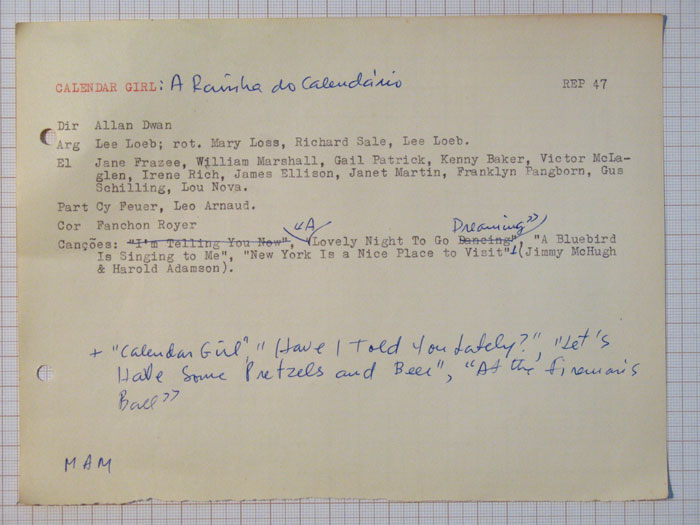 CALENDAR GIRL: A Rainha do Calendário REP 47
Dir Allan Dwan
Arg Lee Loeb; rot. Mary Loss, Richard Sale, Lee Loeb.
El Jane Frazee, William Marshall, Gail Patrick, Kenny Baker, Victor McLa-
glen, Irene Rich, James Ellison, Janet Martin, Franklyn Pangborn, Gus
Schilling, Lou Nova.
Part Cy Feuer, Leo Arnaud.
Cor Fanchon Royer
"A Dreaming"
Canções: "I'm Telling You Now", "Lovely Night To Go Dancing", "A Bluebird
Is Singing to Me", "New York Is a Nice Place to Visit" (Jimmy McHugh
& Harold Adamson).
+ "Calendar Girl", "Have I Told You Lately?", "Let's
Have Some Pretzels and Beer", "At the Fireman's
Ball"
MAM